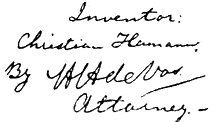 Inventor:
Christian Hamann,
By H A de Vos.
Attorney.